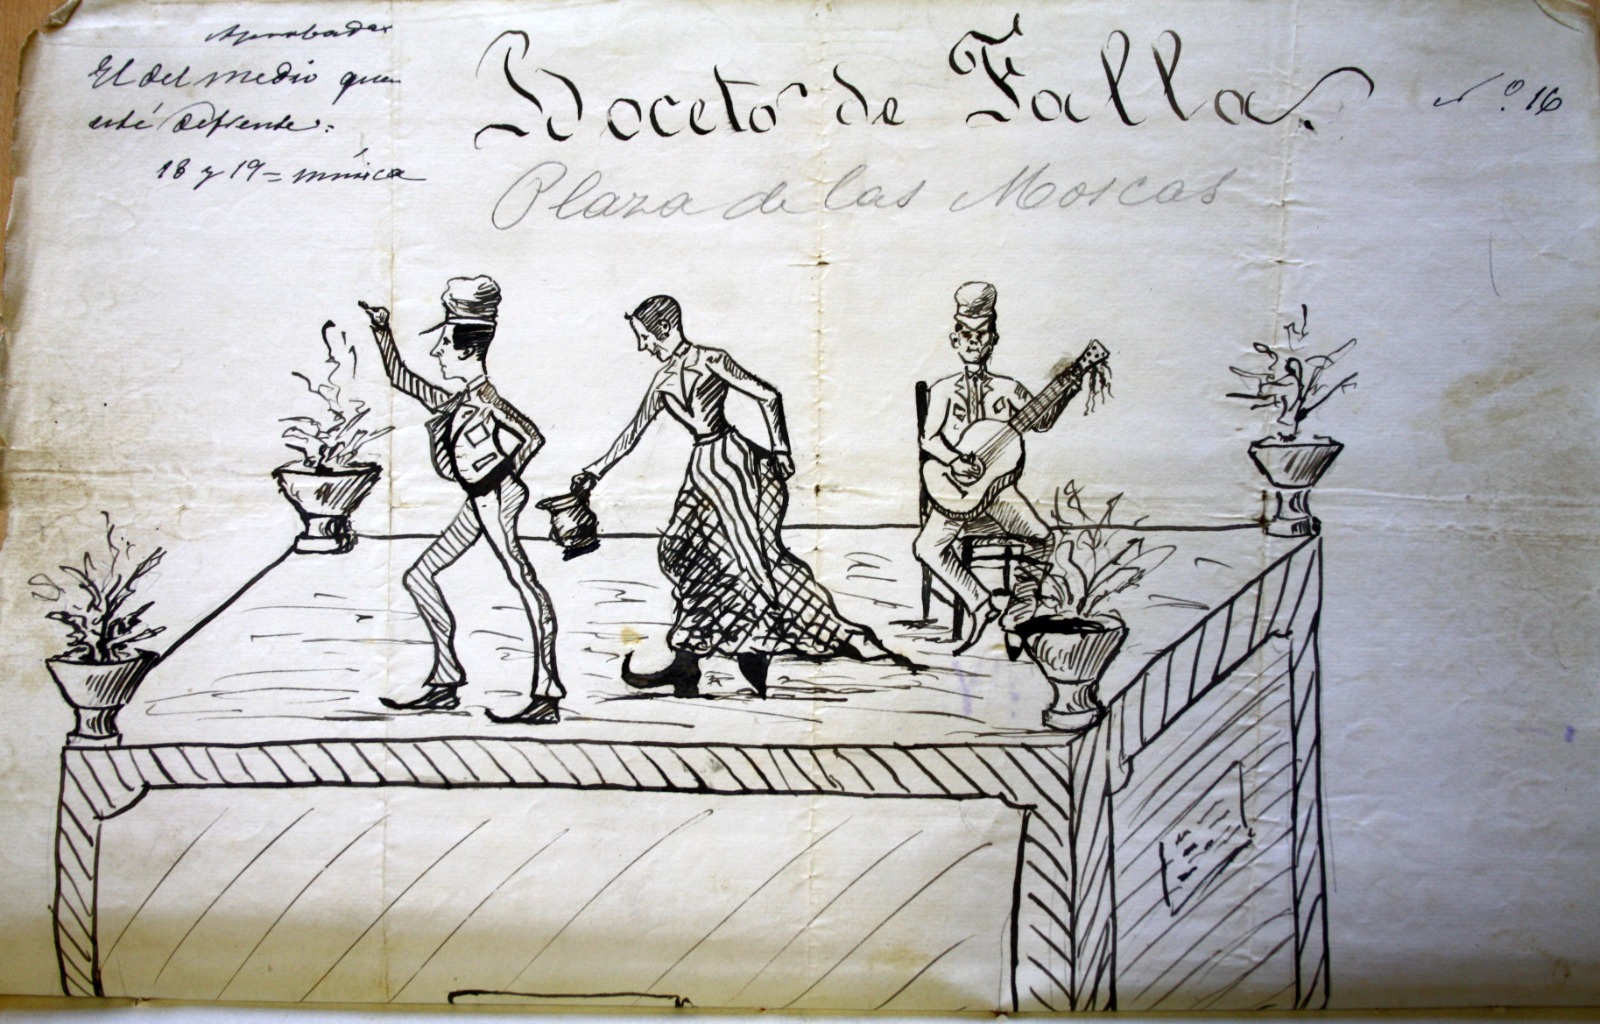 Aprobada
El del medio que
esté defrente:
18 y 19 = música
Boceto de Falla.
Nº 16
Plaza de las Moscas